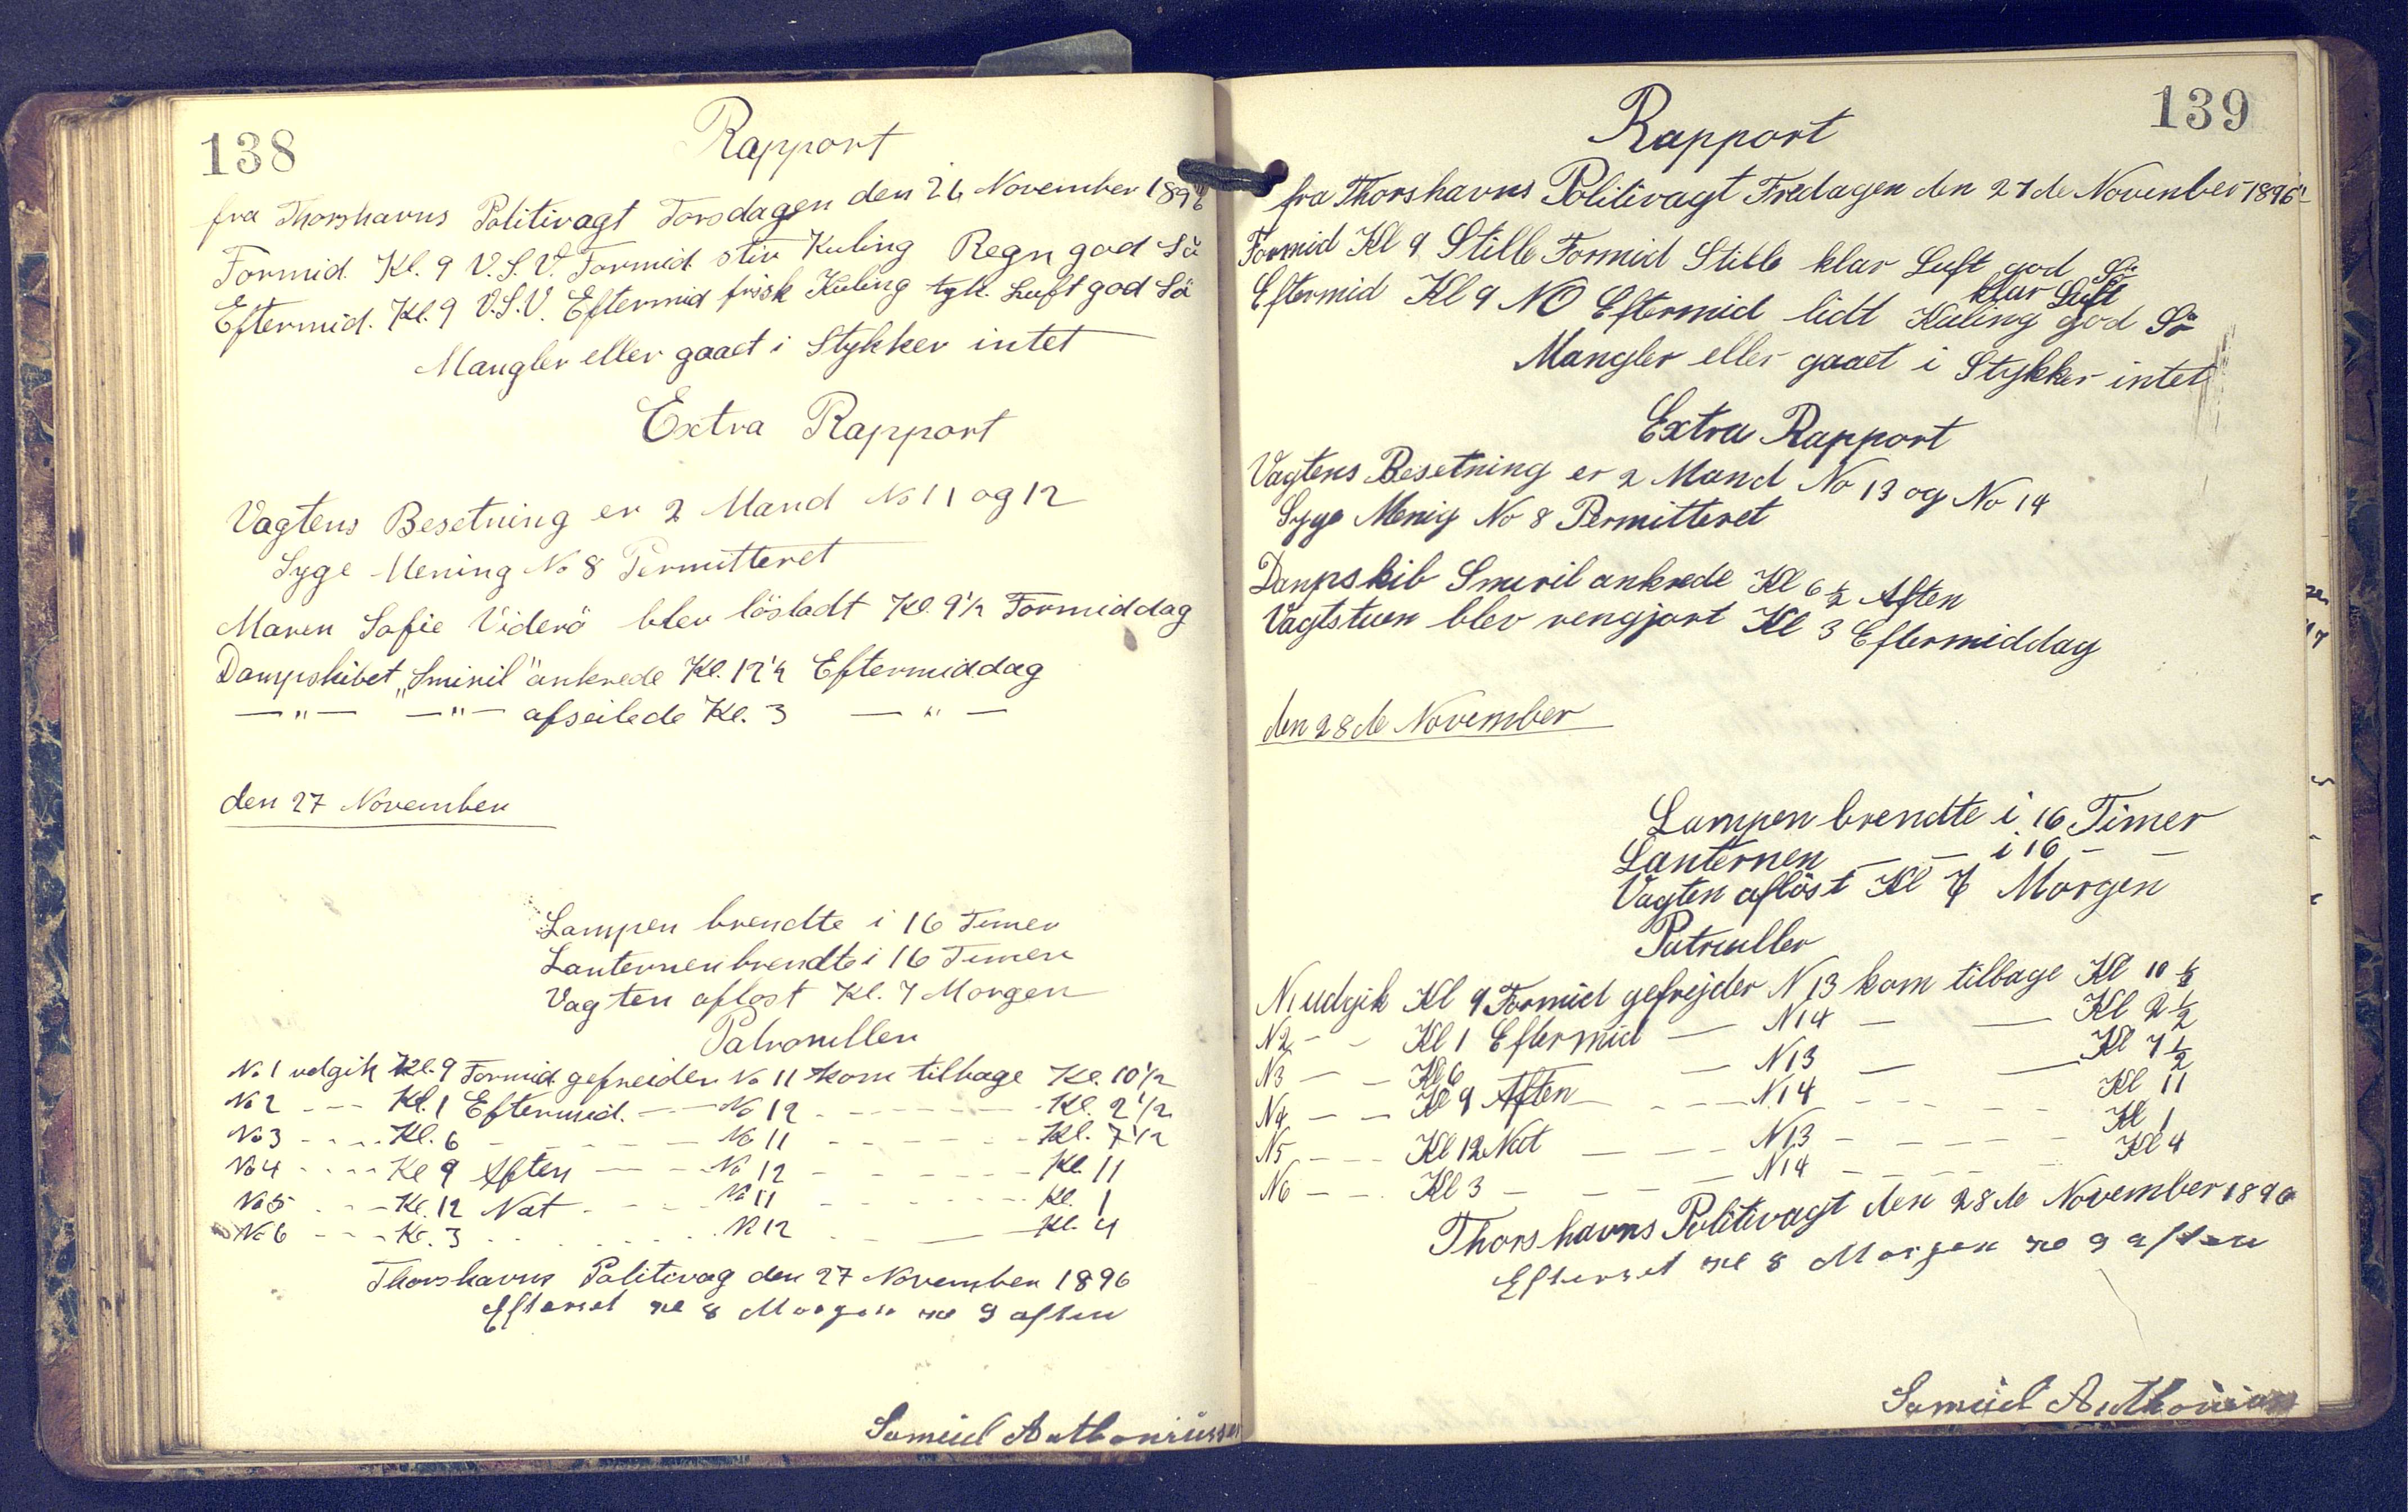 138
Rapport
fra Thorshavns Politivagt Torsdagen den 26 November 1896
Formid. Kl. 9 V.S.V. Formid. stiv Kuling Regn god Sö
Eftermid. Kl. 9 V.S.V. Eftermid frisk Kuling tyk. Luft god Sö
Mangler eller gaaet i Stykker intet
Extra Rapport
Vagtens Besetning er 2 Mand No 11 og 12
Syge Mening No 8 Permitteret
Maren Sofie Viderö blev lösladt Kl. 9 1/2 Formiddag
Dampskibet „Smiril" ankrede Kl. 12 1/2 Eftermiddag
— " — — " — afseilede Kl. 3 — " —
den 27 November
Lampen brendte i 16 Timer
Lanternen brendte i 16 Timer
Vagten aflost Kl. 7 Morgen
Patrouller
No 1 udgik Kl. 9 Formid. gefreider No 11 kom tilbage Kl. 10 1/2
No 2 - - - Kl. 1 Eftermid. - - No 12 - - - - Kl. 2 1/2
No 3 - - - Kl. 6 - - - - No 11 - - - - Kl. 7 1/2
No 4 - - - Kl 9 Aften - - - No 12 - - - - Kl. 11
No 5 - - - Kl. 12 Nat - - - No 11 - - - - Kl. 1
No 6 - - - Kl. 3 - - - - N 12 - - - Kl. 4
Thorshavns Politivag den 27 November 1896
Efterset Kl 8 Morgen Kl 9 aften
Samuel Anthoniussen
139
Rapport
fra Thorshavns Politivagt Fredagen den 27de November 1896
Formid Kl 9 Stille Formid Stille klar Luft god Sö
klar Luft
Eftermid Kl 9 NO Eftermid lidt Kuling god Sö
Mangler eller gaaet i Stykker intet
Extra Rapport
Vagtens Besetning er 2 Mand No 13 og No 14
Syge Menig No 8 Permitteret
Dampskib Smiril ankrede Kl 6 1/2 Aften
Vagtstuen blev rengjort Kl 3 Eftermiddag
den 28de November
Lampen brendte i 16 Timer
Lanternen — — i 16 — —
Vagten aflöst Kl 7 Morgen
Patruller
N1 udgik Kl 9 Formid gefrejder N 13 kom tilbage Kl 10 1/2
N2 - - Kl 1 Eftermid — N14 — — Kl 2 1/2
N3 - - Kl 6 — N13 — — Kl 7 1/2
N4 - - Kl 9 Aften - - - N14 - - - - Kl 11
N5 - - - Kl 12 Nat - - - N13 - - - - Kl 1
N6 - - Kl 3 - - - - N14 - - - - Kl 4
Thorshavns Politivagt den 28de November 1896
Efterset Kl 8 Morgen Kl 9 aften
Samuel